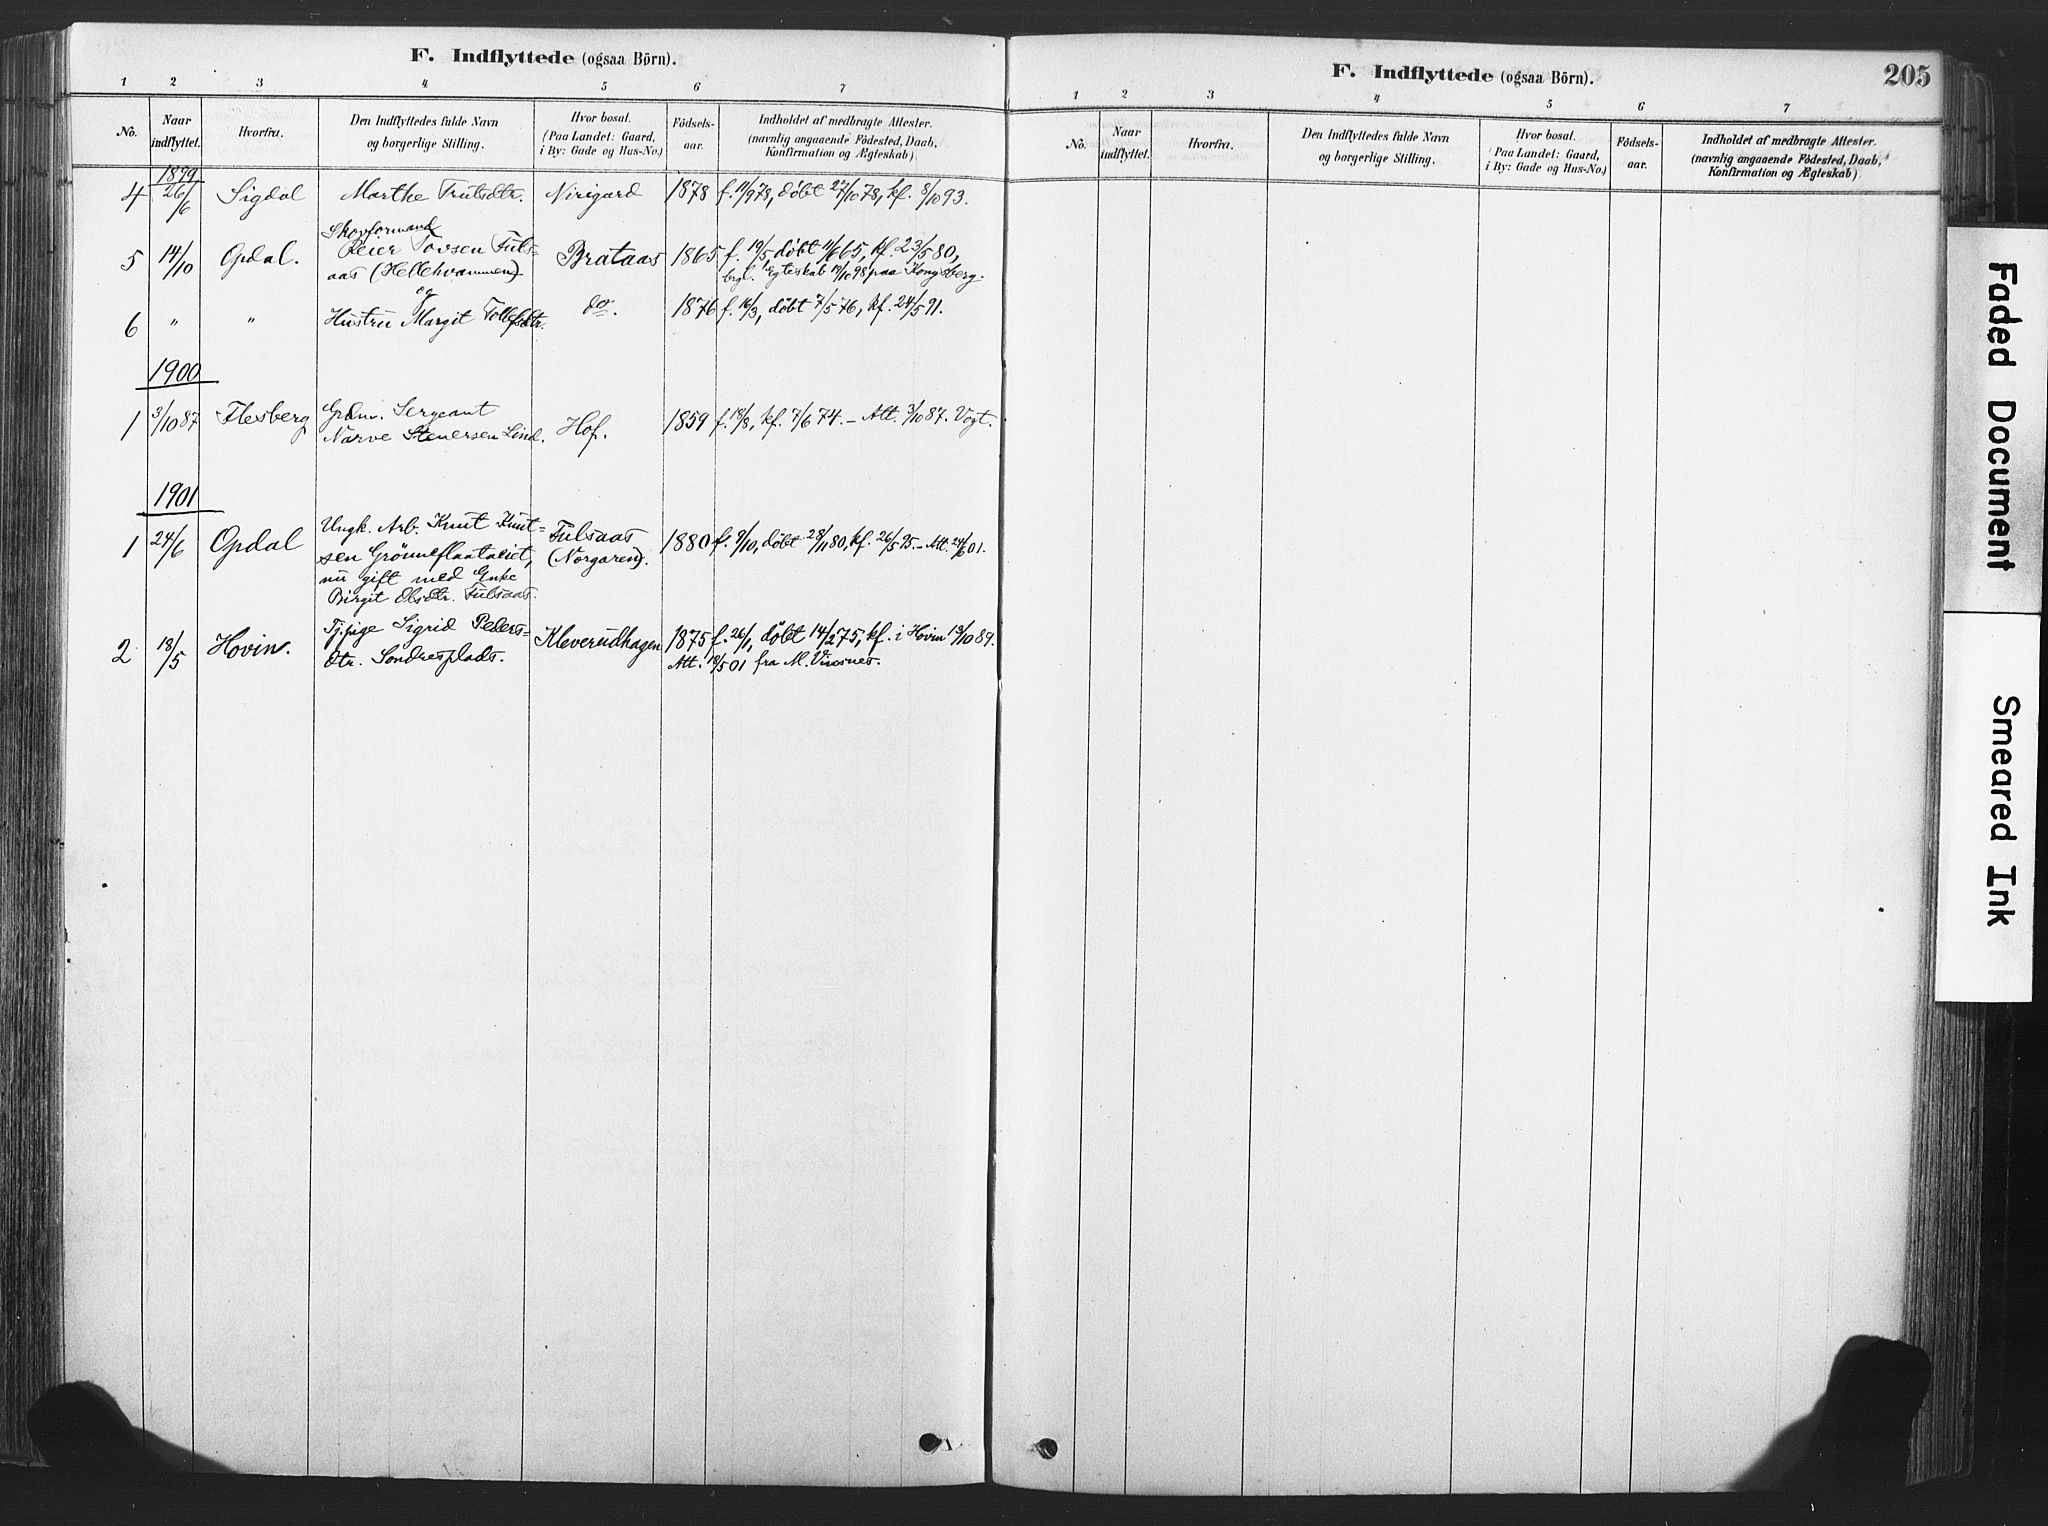 F. Indflyttede (ogsaa Börn).
1 2 3 4 5 6 7
No.
Naar
indflyttet.
Hvorfra.
Den Indflyttedes fulde Navn
og borgerlige Stilling.
Hvor bosat.
(Paa Landet: Gaard,
i By: Gade og Hus-No.)
Födsels-
aar.
Indholdet af medbragte Attester.
(navnlig angaaende Födested, Daab,
Konfirmation og Ægteskab).
1899
4 26/6 Sigdal Marthe Trulsdtr. Nirigard 1878 f. 11/9 78, døbt 27/10 78, kf. 8/10 93.
Skovformand
5 14/10 Opdal. Reier Tovsen Fuls- Brataas 1865 f. 19/5, døbt 11/6 65, kf. 23/5 80,
aas (Hellehvammen) brgl. Egteskab 19/10 98 paa Kongsberg.
og
6 " " Hustru Margit Tollefsdtr. do. 1876 f. 16/3, døbt 7/5 76, kf. 24/5 91.
1900
1 3/10 87 Flesberg Grdm. Sergeant
Narve Stenersen Lind. Hof. 1859 f. 18/8, kf. 7/6 74. – Att. 3/10 87. Vogt.
1901
1 24/6 Opdal Ungk. Arb. Knut Knut- Fulsaas 1880 f. 9/10, døbt 28/11 80, kf. 26/5 95. – Att. 24/6 01.
sen Grönneflaataeiet, (Norgaren).
nu gift med Enke
Birgit Olsdtr. Fulsaas.
2 18/5 Hovin. Tj.pige Sigrid Peders- Kleverudhagen 1875 f. 26/1, døbt 14/2 75, kf. i Hovin 13/10 89.
dtr. Sondresplads. Att. 18/5 01 fra M. Visnes.
F. Indflyttede (ogsaa Börn).
205
1 2 3 4 5 6 7
No.
Naar
indflyttet.
Hvorfra.
Den Indflyttedes fulde Navn
og borgerlige Stilling.
Hvor bosat.
(Paa Landet: Gaard,
i By: Gade og Hus-No.)
Födsels-
aar.
Indholdet af medbragte Attester.
(navnlig angaaende Födested, Daab,
Konfirmation og Ægteskab).
Faded Document
Smeared Ink